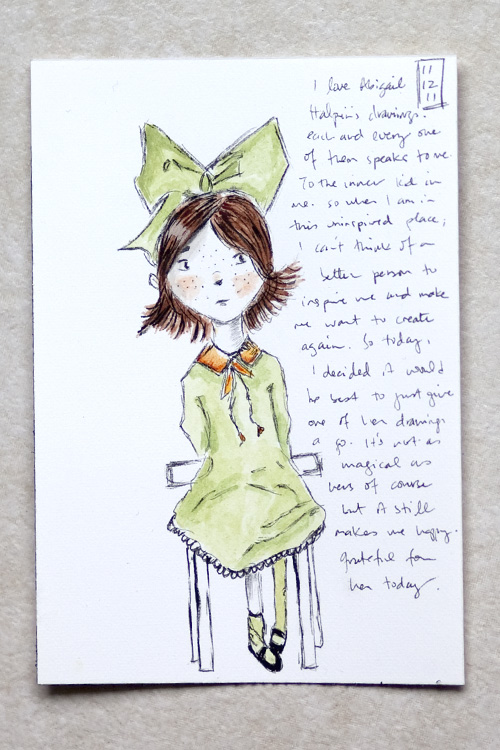 11
12
11
I love Abigail
Halpin's drawings.
each and every one
of them speaks to me.
To the inner kid in
me. so when I am in
this uninspired place,
I can't think of a
better person to
inspire me and make
me want to create
again. So today,
I decided it would
be best to just give
one of her drawings
a go. It's not as
magical as
hers of course
but it still
makes me happy.
grateful for
her today.